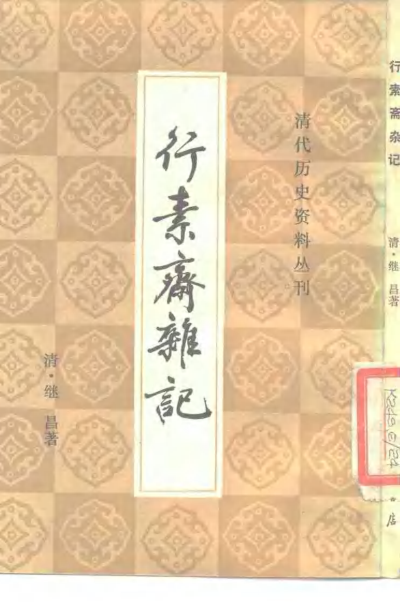 清代历史资料丛刊
行素齋雜記
清·继 昌著
行素斋杂记
清·继 昌著
店